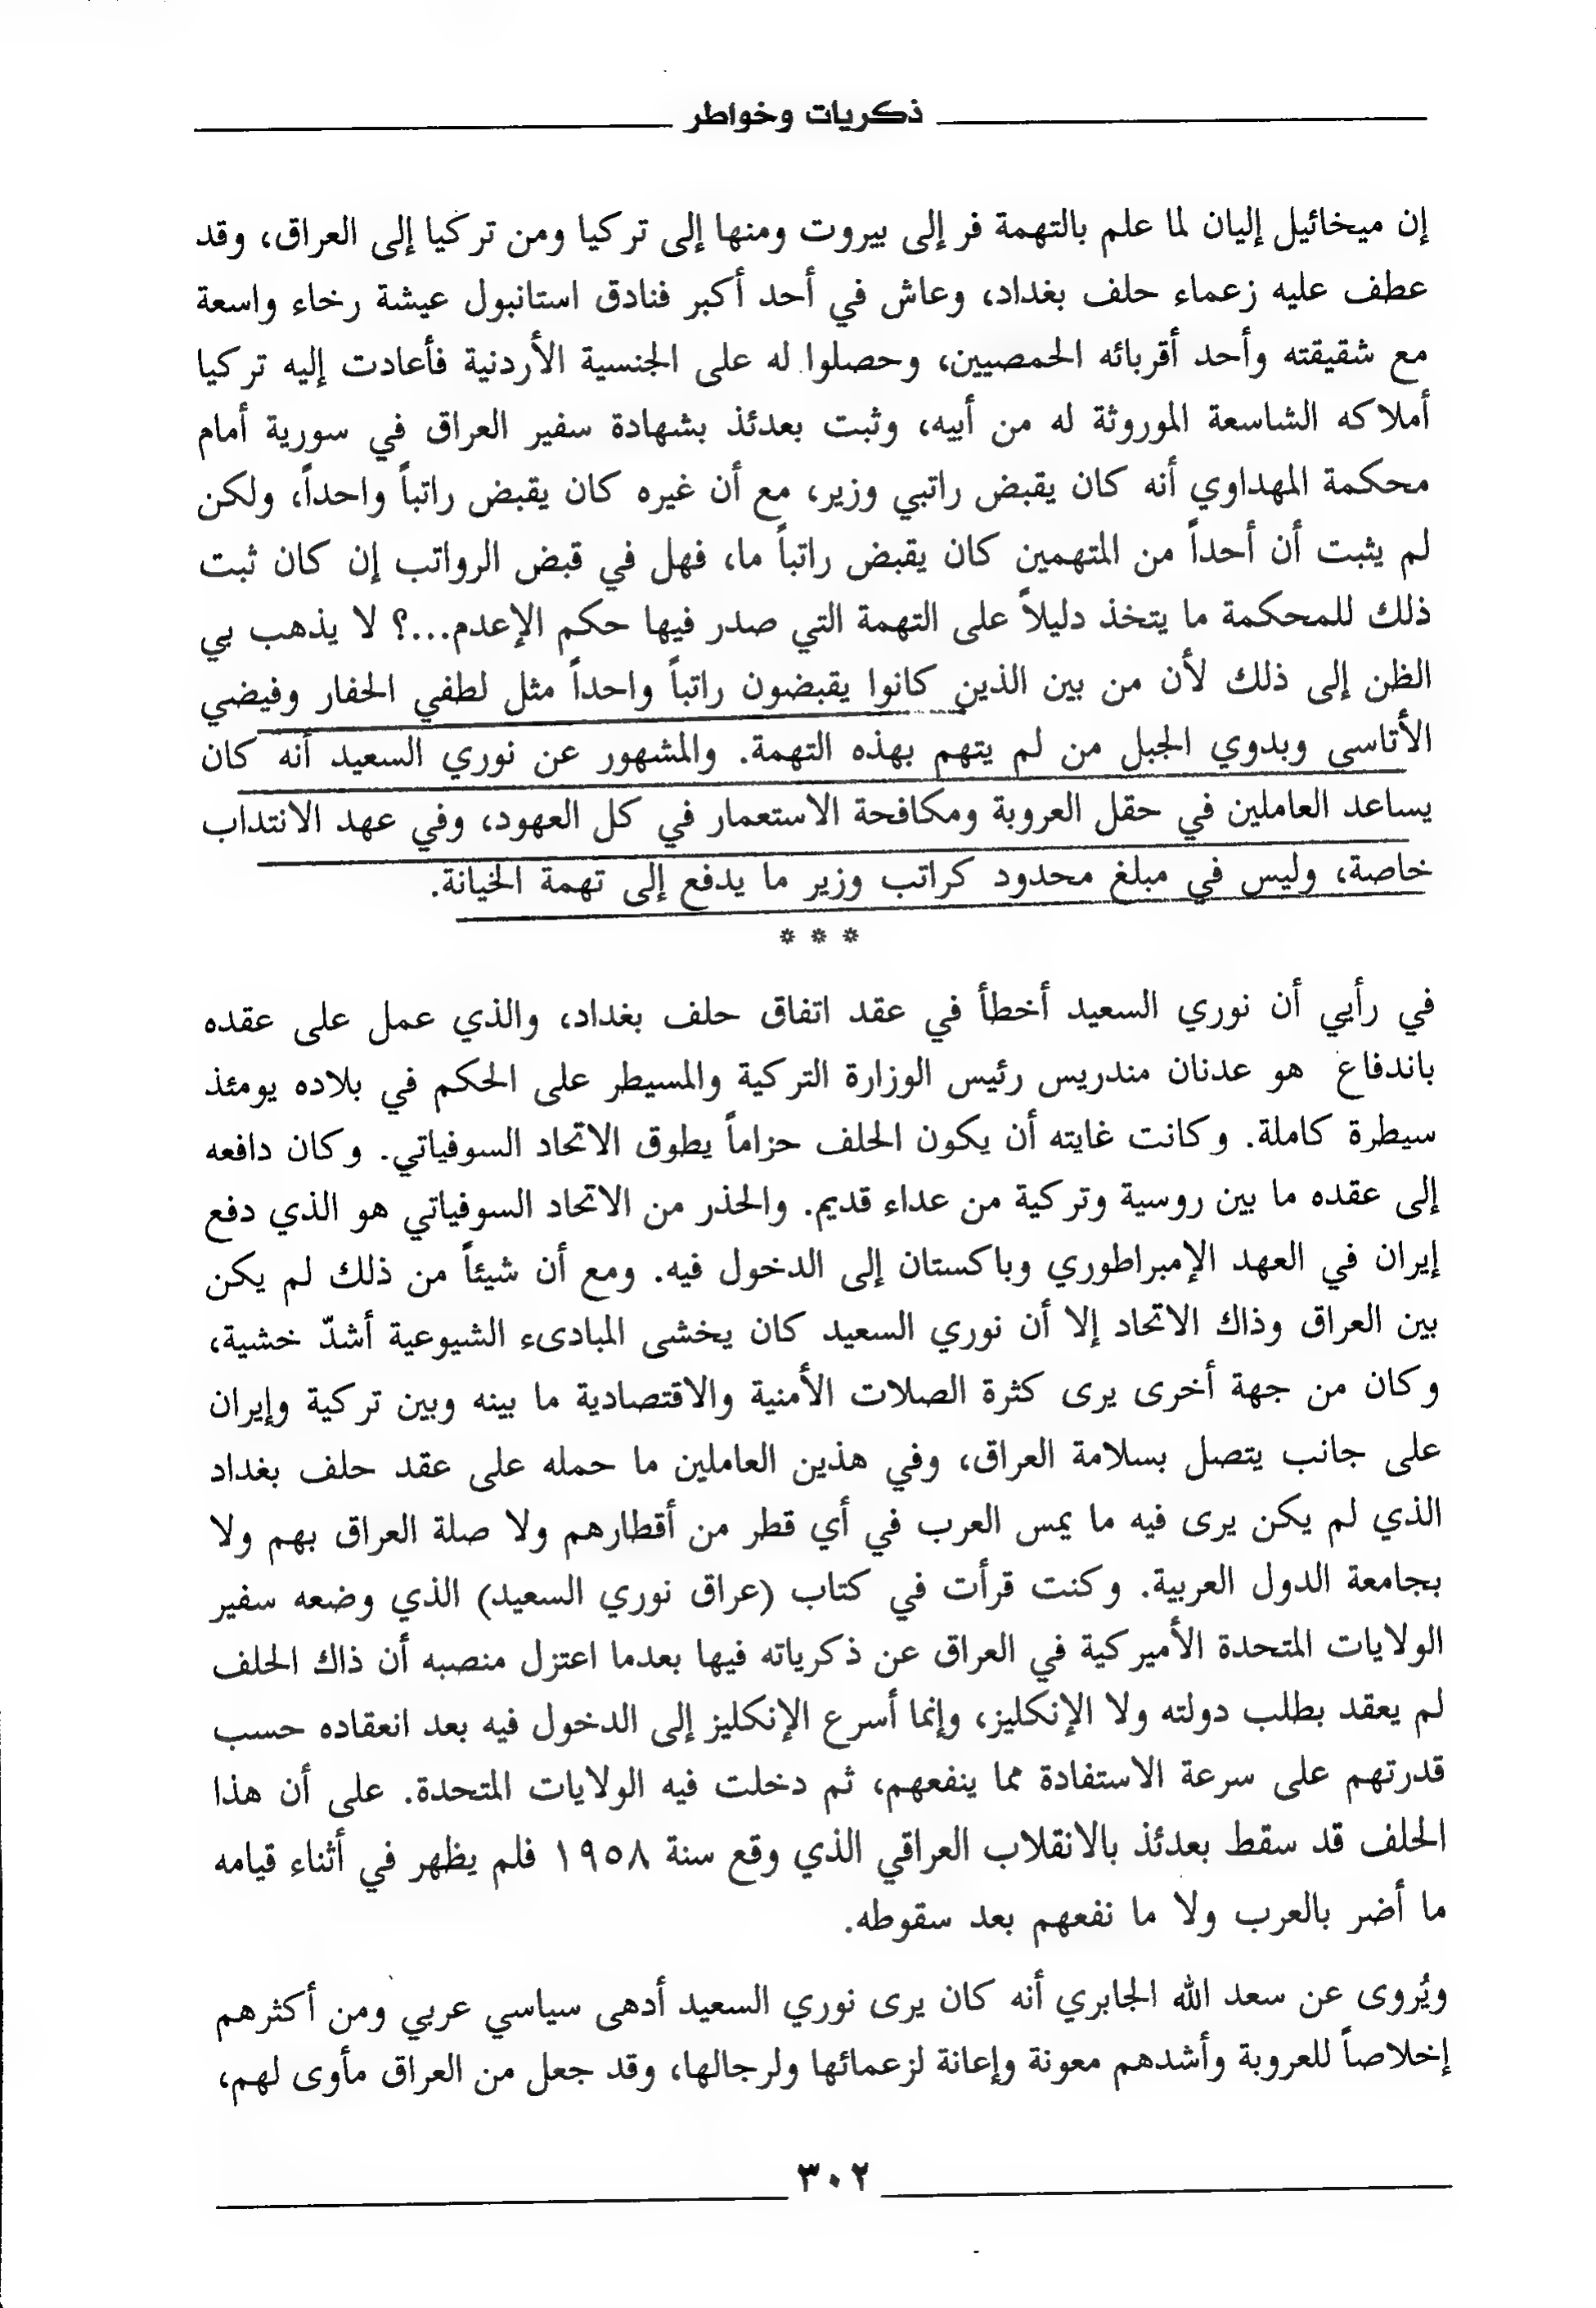 ذكريات وخواطر
إن ميخائيل إليان لما علم بالتهمة فر إلى بيروت ومنها إلى تركيا ومن تركيا إلى العراق، وقد
عطف عليه زعماء حلف بغداد، وعاش في أحد أكبر فنادق استانبول عيشة رخاء واسعة
مع شقيقته وأحد أقربائه الحمصيين، وحصلوا له على الجنسية الأردنية فأعادت إليه تركيا
أملاكه الشاسعة الموروثة له من أبيه، وثبت بعدئذ بشهادة سفير العراق في سورية أمام
محكمة المهداوي أنه كان يقبض راتبي وزير، مع أن غيره كان يقبض راتباً واحداً، ولكن
لم يثبت أن أحداً من المتهمين كان يقبض راتباً ما، فهل في قبض الرواتب إن كان ثبت
ذلك للمحكمة ما يتخذ دليلاً على التهمة التي صدر فيها حكم الإعدم...؟ لا يذهب بي
الظن إلى ذلك لأن من بين الذين كانوا يقبضون راتباً واحداً مثل لطفي الحفار وفيضي
الأتاسي وبدوي الجبل من لم يتهم بهذه التهمة. والمشهور عن نوري السعيد أنه كان
يساعد العاملين في حقل العروبة ومكافحة الاستعمار في كل العهود، وفي عهد الانتداب
خاصة، وليس في مبلغ محدود كراتب وزير ما يدفع إلى تهمة الخيانة.
* * *
في رأيي أن نوري السعيد أخطأ في عقد اتفاق حلف بغداد، والذي عمل على عقده
باندفاع هو عدنان مندريس رئيس الوزارة التركية والمسيطر على الحكم في بلاده يومئذ
سيطرة كاملة. وكانت غايته أن يكون الحلف حزاماً يطوق الاتحاد السوفياتي. وكان دافعه
إلى عقده ما بين روسية وتركية من عداء قديم. والحذر من الاتحاد السوفياتي هو الذي دفع
إيران في العهد الإمبراطوري وباكستان إلى الدخول فيه. ومع أن شيئاً من ذلك لم يكن
بين العراق وذاك الاتحاد إلا أن نوري السعيد كان يخشى المبادىء الشيوعية أشدّ خشية،
وكان من جهة أخرى يرى كثرة الصلات الأمنية والاقتصادية ما بينه وبين تركية وإيران
على جانب يتصل بسلامة العراق، وفي هذين العاملين ما حمله على عقد حلف بغداد
الذي لم يكن يرى فيه ما يمس العرب في أي قطر من أقطارهم ولا صلة العراق بهم ولا
بجامعة الدول العربية. وكنت قرأت في كتاب (عراق نوري السعيد) الذي وضعه سفير
الولايات المتحدة الأميركية في العراق عن ذكرياته فيها بعدما اعتزل منصبه أن ذاك الحلف
لم يعقد بطلب دولته ولا الإنكليز، وإنما أسرع الإنكليز إلى الدخول فيه بعد انعقاده حسب
قدرتهم على سرعة الاستفادة مما ينفعهم، ثم دخلت فيه الولايات المتحدة. على أن هذا
الحلف قد سقط بعدئذ بالانقلاب العراقي الذي وقع سنة ١٩٥٨ فلم يظهر في أثناء قيامه
ما أضر بالعرب ولا ما نفعهم بعد سقوطه.
ويُروى عن سعد الله الجابري أنه كان يرى نوري السعيد أدهى سياسي عربي ومن أكثرهم
إخلاصاً للعروبة وأشدهم معونة وإعانة لزعمائها ولرجالها، وقد جعل من العراق مأوى لهم،
٣٠٢